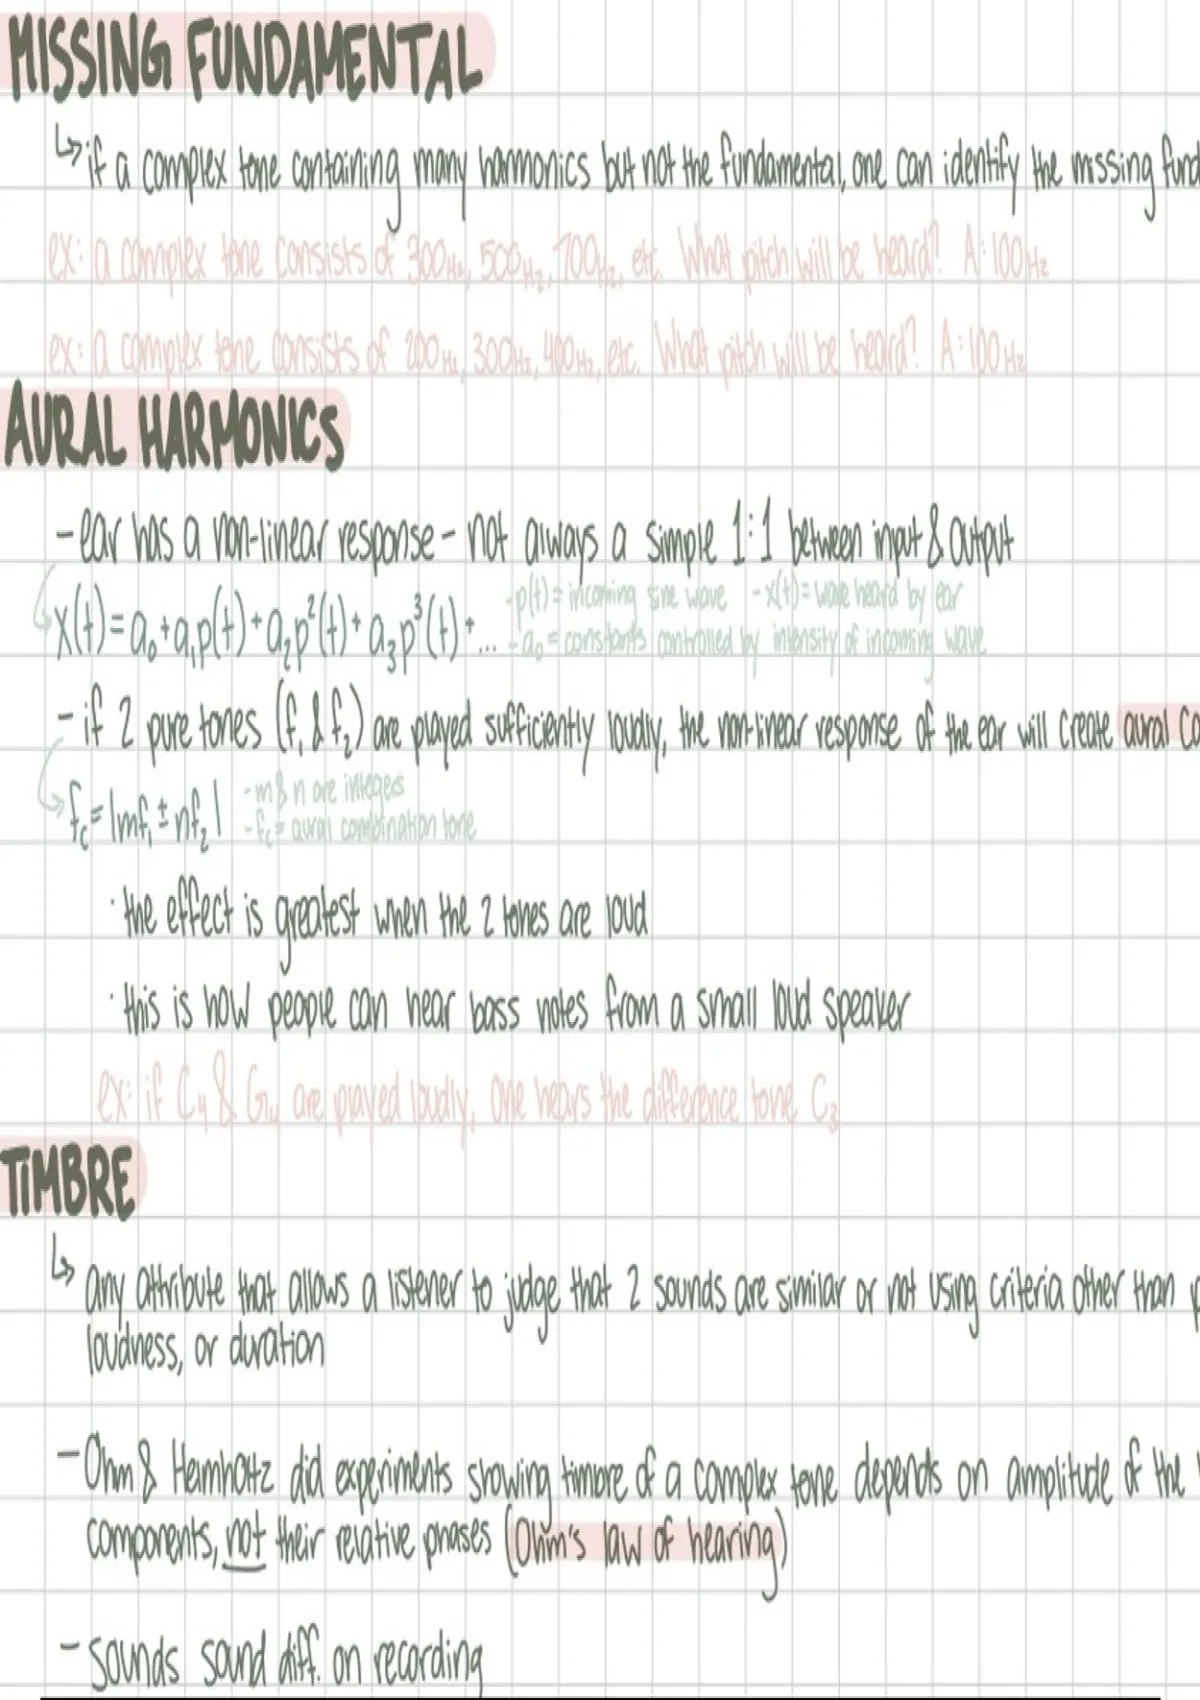 MISSING FUNDAMENTAL
↳ if a complex tone containing many harmonics but not the fundamental, one can identify the missing fund
ex: a complex tone consists of 300Hz, 500Hz, 700Hz, etc. What pitch will be heard? A: 100Hz
ex: a complex tone consists of 200Hz, 300Hz, 400Hz, etc. What pitch will be heard? A: 100Hz
AURAL HARMONICS
- ear has a non-linear response - not always a simple 1:1 between input & output
x(t) = a₀ + a₁p(t) + a₂p²(t) + a₃p³(t) + ... - p(t) = incoming sine wave - x(t) = wave heard by ear
- a₀ = constants controlled by intensity of incoming wave
- if 2 pure tones (f₁ & f₂) are played sufficiently loudly, the non-linear response of the ear will create aural co
f_c = |mf₁ ± nf₂| - m & n are integers
- f_c = aural combination tone
· the effect is greatest when the 2 tones are loud
· this is how people can hear bass notes from a small loud speaker
ex: if C₄ & G₄ are played loudly, one hears the difference tone C₃
TIMBRE
↳ any attribute that allows a listener to judge that 2 sounds are similar or not using criteria other than p
loudness, or duration
- Ohm & Hemholtz did experiments showing timbre of a complex tone depends on amplitude of the
components, not their relative phases (Ohm's law of hearing)
- sounds sound diff. on recording